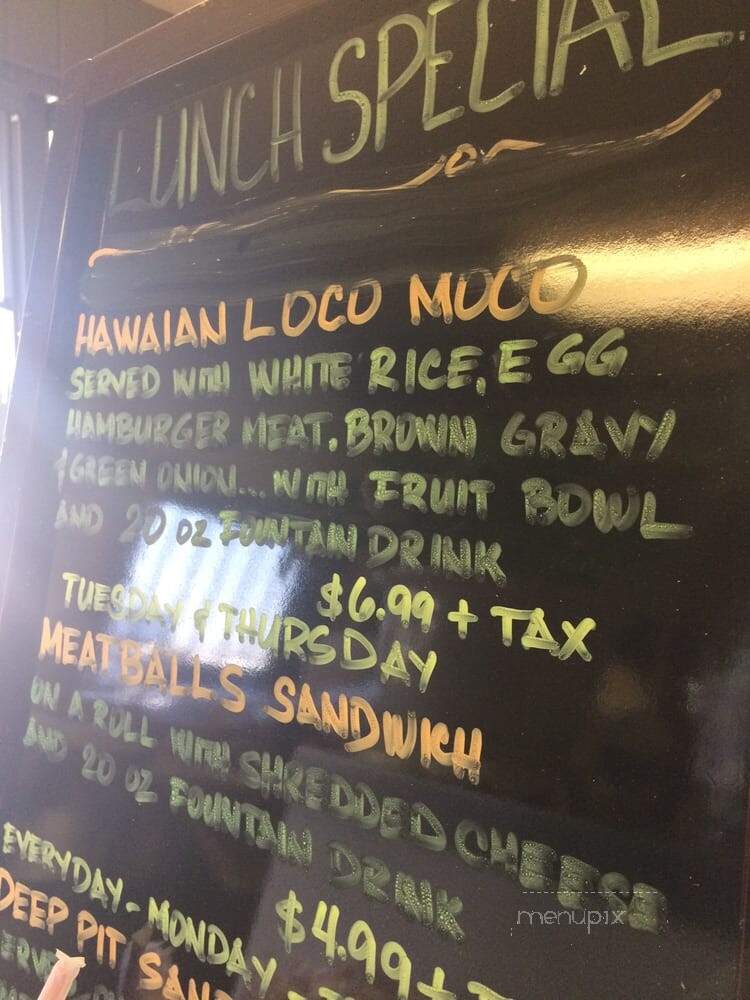 LUNCH SPECIAL
HAWAIAN LOCO MOCO
SERVED WITH WHITE RICE, EGG
HAMBURGER MEAT, BROWN GRAVY
& GREEN ONION... WITH FRUIT BOWL
AND 20 OZ FOUNTAIN DRINK
$6.99 + TAX
TUESDAY & THURSDAY
MEATBALLS SANDWICH
ON A ROLL WITH SHREDDED CHEESE
AND 20 OZ FOUNTAIN DRINK
$4.99 +
EVERYDAY - MONDAY -
DEEP PIT
menupix